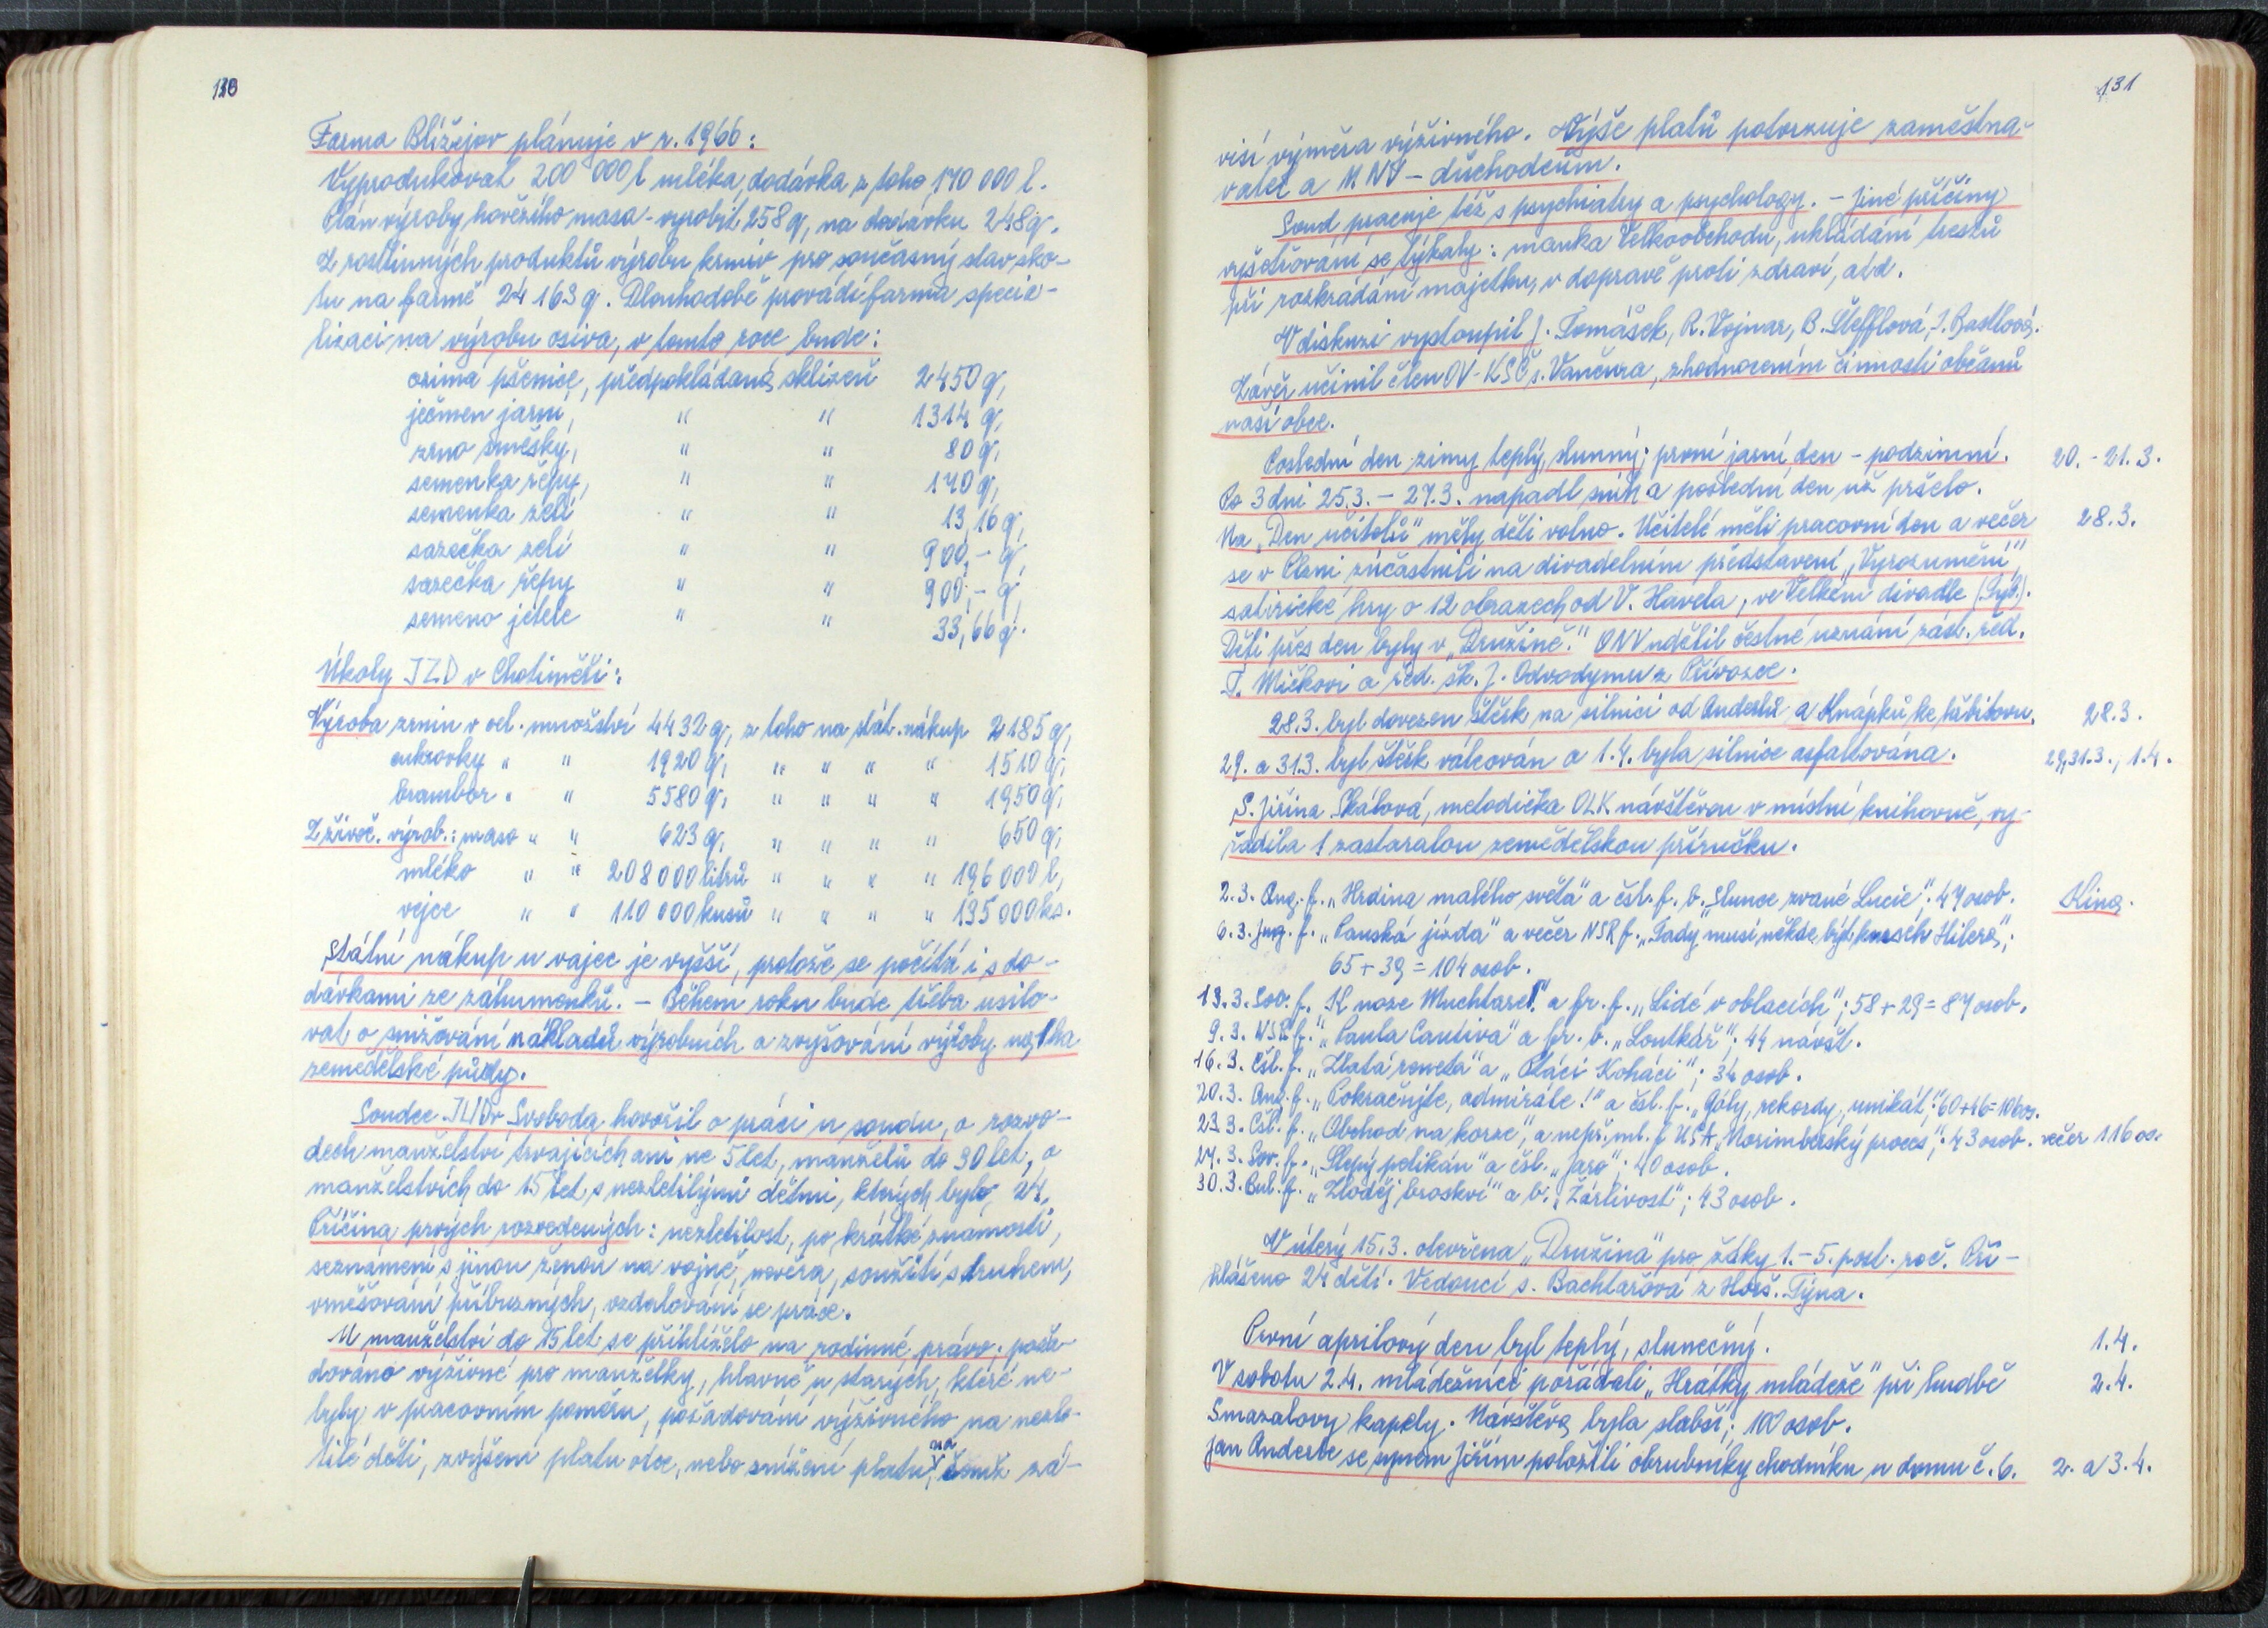 130
Farma Blížejov plánuje v r. 1966:
Vyprodukovat 200 000 l mléka, dodávka z toho 170 000 l.
Plán výroby hovězího masa - vyrobit 258 q, na dodávku 248 q.
Z rostlinných produktů výrobu krmiv pro současný stav sko-
tu na farmě 24 163 q. Dlouhodobě provádí farma specia-
lizaci na výrobu osiva, v tomto roce bude:
ozimá pšenice, předpokládaná sklizeň 2450 q,
ječmen jarní, " " 1314 q,
zrno směsky, " " 80 q,
semenka řepy, " " 170 q,
semenka zelí " " 13,16 q,
sazečka zelí " " 900,- q,
sazečka řepy " " 900,- q,
semeno jetele " " 33,66 q.
Úkoly JZD v Chotiměři:
Výroba zrnin v cel. množství 4432 q, z toho na stát. nákup 2185 q,
cukrovky " " 1920 q, " " " " 1510 q,
brambor " " 5580 q, " " " " 1950 q,
Z živoč. výrob.: maso " " 623 q, " " " " 650 q,
mléko " " 208 000 litrů " " " " 196 000 l,
vejce " " 110 000 kusů " " " " 135 000 ks.
Státní nákup u vajec je vyšší, protože se počítá i s do-
dávkami ze záhumenků. - Během roku bude třeba usilo-
vat o snižování nákladů výrobních a zvyšování výroby na 1 ha
zemědělské půdy.
Soudce JUDr Svoboda hovořil o práci u soudu, o rozvo-
dech manželství trvajících ani ne 5 let, manželů do 30 let, o
manželstvích do 15 let, s nezletilými dětmi, kterých bylo 24.
Příčina prvých rozvedených: nezletilost, po krátké známosti,
seznámení s jinou ženou na vojně, nevěra, soužití s druhem,
vměšování příbuzných, vzdalování se práce.
U manželství do 15 let se přihlíželo na rodinné právo, poža-
dováno výživné pro manželky, hlavně u starých, které ne-
byly v pracovním poměru, požadování výživného na nezle-
tilé děti, zvýšení platu otce, nebo snížení platu, na čemž zá-
131
visí výměra výživného. Výše platů potvrzuje zaměstna-
vatel a MNV - důchodcům.
Soud pracuje též s psychiatry a psychology. - Jiné příčiny
vyšetřování se týkaly: manka Velkoobchodu, ukládání trestů
při rozkrádání majetku, v dopravě proti zdraví, atd.
V diskuzi vystoupil J. Tomášek, R. Vojnar, B. Štefflová, J. Bastlová.
Závěr učinil člen OV-KSČ s. Vančura, zhodnocením činnosti občanů
naší obce.
Poslední den zimy teplý, slunný; první jarní den - podzimní. 20. - 21. 3.
Po 3 dni 25.3. - 27.3. napadl sníh a poslední den už pršelo.
Na "Den učitelů" měly děti volno. Učitelé měli pracovní den a večer 28.3.
se v Plzni zúčastnili na divadelním představení "Vyrozumění",
satirické hry o 12 obrazech od V. Havla, ve Velkém divadle (Tyl.).
Děti přes den byly v "Družině". ONV udělil čestné uznání zást. řed.
T. Mičkovi a řed. šk. J. Odvodymu z Přívozce.
28.3. byl dovezen štěrk na silnici od Anderlů a Knápků ke hřbitovu. 28.3.
29. a 31.3. byl štěrk válcován a 1.4. byla silnice asfaltována. 29., 31.3., 1.4.
S. Jiřina Skálová, metodička OLK návštěvou v místní knihovně, vy-
řadila 1 zastaralou zemědělskou příručku.
2.3. Ang. f. "Hrdina malého světa" a čsl. f. b. "Slunce zvané Lucie". 47 osob. Kino.
6.3. Jug. f. "Panská jízda" a večer NSR f. "Tady musí někde být kousek Hitlera";
65 + 39 = 104 osob.
13.3. Sov. f. "K noze Muchtare!" a fr. f. "Lidé v oblacích"; 58 + 29 = 87 osob.
9.3. NSR f. "Paula Cautiva" a fr. b. "Loutkář". 44 návšt.
16.3. Čsl. f. "Zlatá reneta" a "Ptáci Koháci"; 34 osob.
20.3. Ang. f. "Pokračujte, admirále!" a čsl. f. "Góly, rekordy, unikát." 60+46=106 os.
23.3. Čsl. f. "Obchod na korze", a nepř. ml. f. USA "Norimberský proces"; 43 osob. večer 116 os.
27.3. Sov. f. "Slepý pelikán" a čsl. "Jaro"; 40 osob.
30.3. Bul. f. "Zloděj broskví" a b. "Žárlivost"; 43 osob.
V úterý 15.3. otevřena "Družina" pro žáky 1.-5. post. roč. Při-
hlášeno 24 dětí. Vedoucí s. Bachtařová z Horš. Týna.
První aprílový den byl teplý, slunečný. 1.4.
V sobotu 2.4. mládežníci pořádali "Hrátky mládeže" při hudbě 2.4.
Smazalovy kapely. Návštěva byla slabší; 100 osob.
Jan Anderle se synem Jiřím položili obrubníky chodníku u domu č. 6. 2. a 3.4.